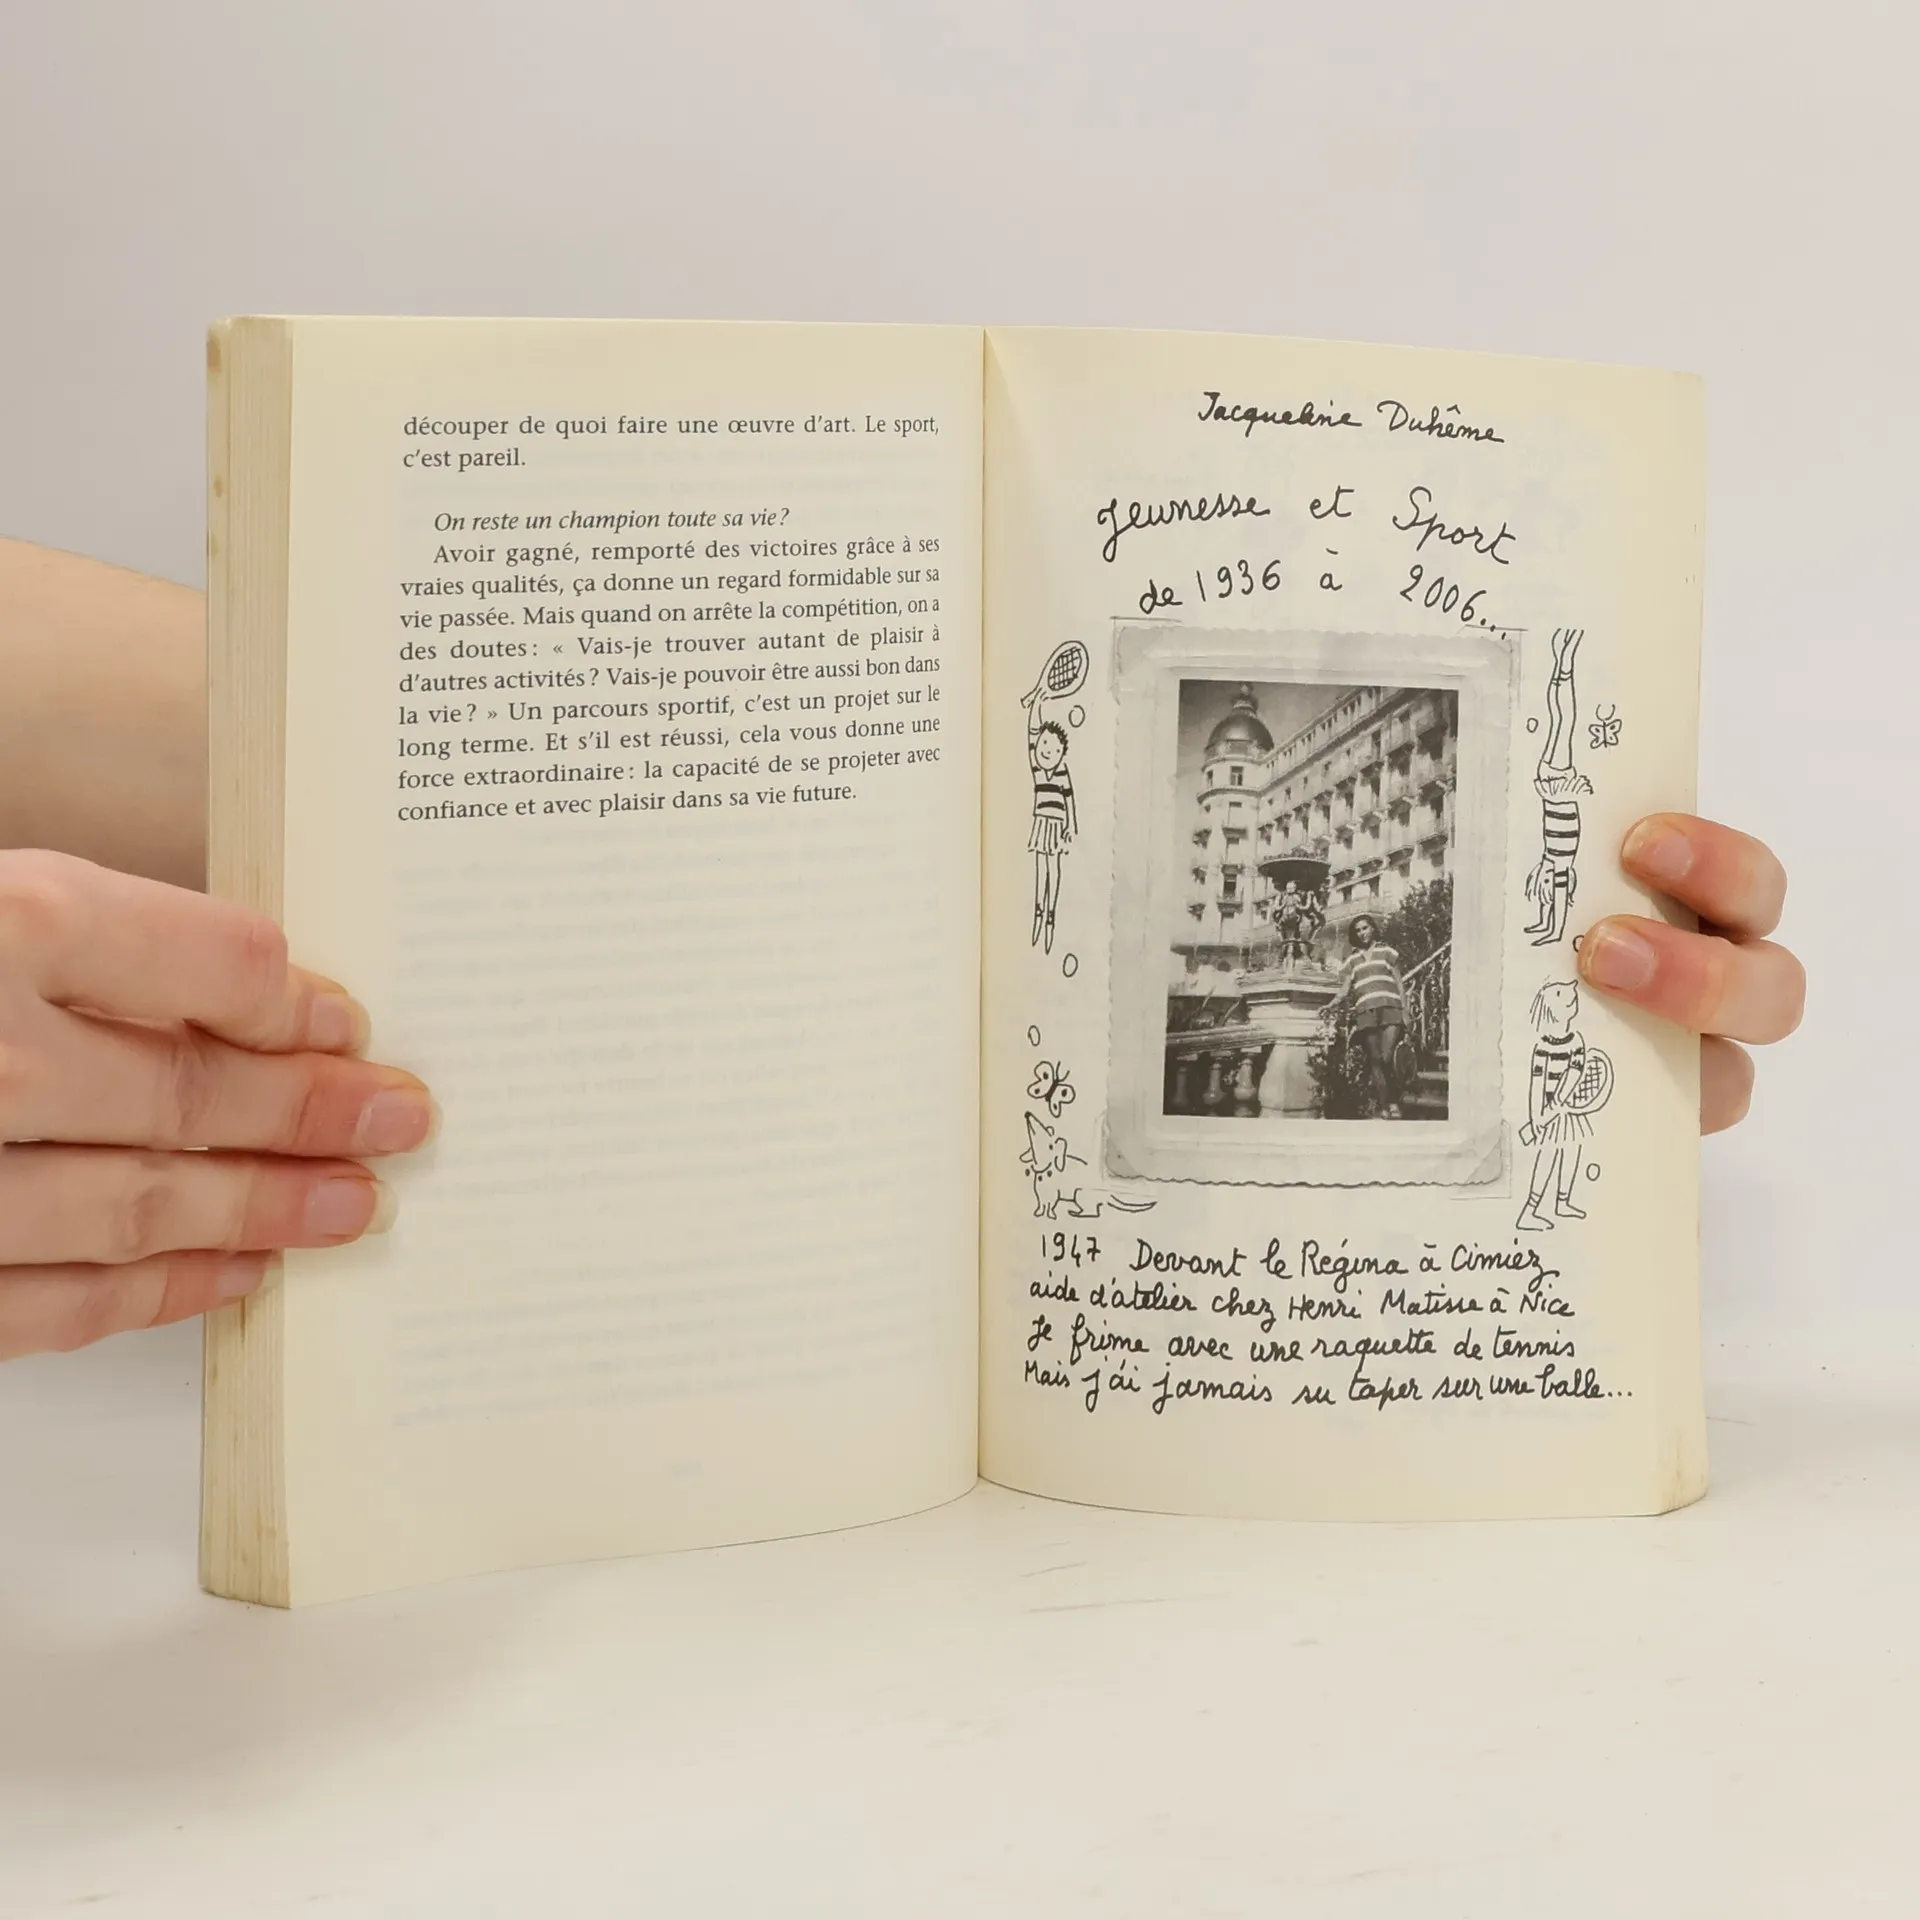 découper de quoi faire une œuvre d'art. Le sport,
c'est pareil.
On reste un champion toute sa vie ?
Avoir gagné, remporté des victoires grâce à ses
vraies qualités, ça donne un regard formidable sur sa
vie passée. Mais quand on arrête la compétition, on a
des doutes : « Vais-je trouver autant de plaisir à
d'autres activités ? Vais-je pouvoir être aussi bon dans
la vie ? » Un parcours sportif, c'est un projet sur le
long terme. Et s'il est réussi, cela vous donne une
force extraordinaire : la capacité de se projeter avec
confiance et avec plaisir dans sa vie future.
Jacqueline Duhême
Jeunesse et Sport
de 1936 à 2006...
1947 Devant le Régina à Cimiez
aide d'atelier chez Henri Matisse à Nice
Je frime avec une raquette de tennis
Mais j'ai jamais su taper sur une balle...